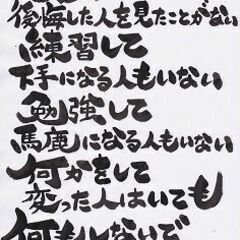 後悔した人を見たことがない
練習して
下手になる人もいない
勉強して
馬鹿になる人もいない
何かをして
変った人はいても
何もしないで